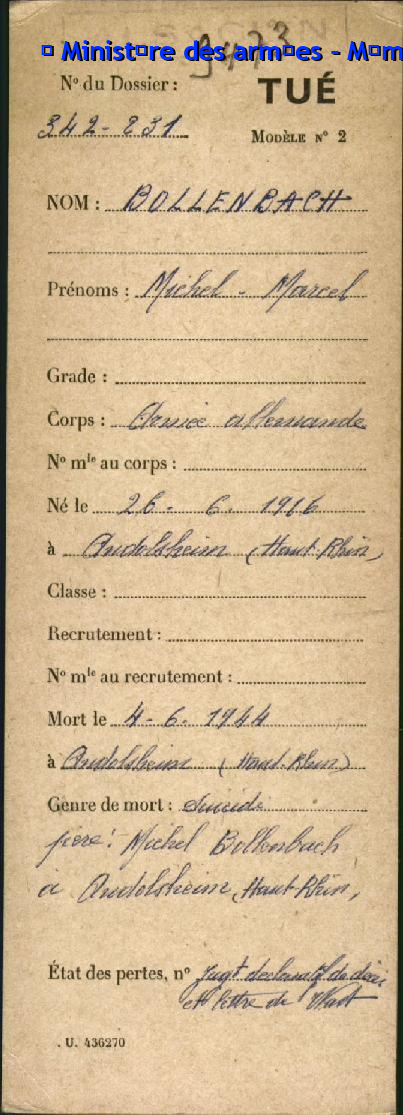 © Ministère des armées - Mém
9473
N° du Dossier :
TUÉ
342-831
MODÈLE N° 2
NOM : BOLLENBACH
Prénoms : Michel - Marcel
Grade :
Corps : Armée allemande
N° mle au corps :
Né le 26 - 6. 1916
à Andolsheim (Haut-Rhin)
Classe :
Recrutement :
N° mle au recrutement :
Mort le 4-6. 1944
à Andolsheim (Haut-Rhin)
Genre de mort : suicide
père : Michel Bollenbach
à Andolsheim, Haut-Rhin,
État des pertes, n° Jugt déclaratif de décès
et lettre de
. U. 436270